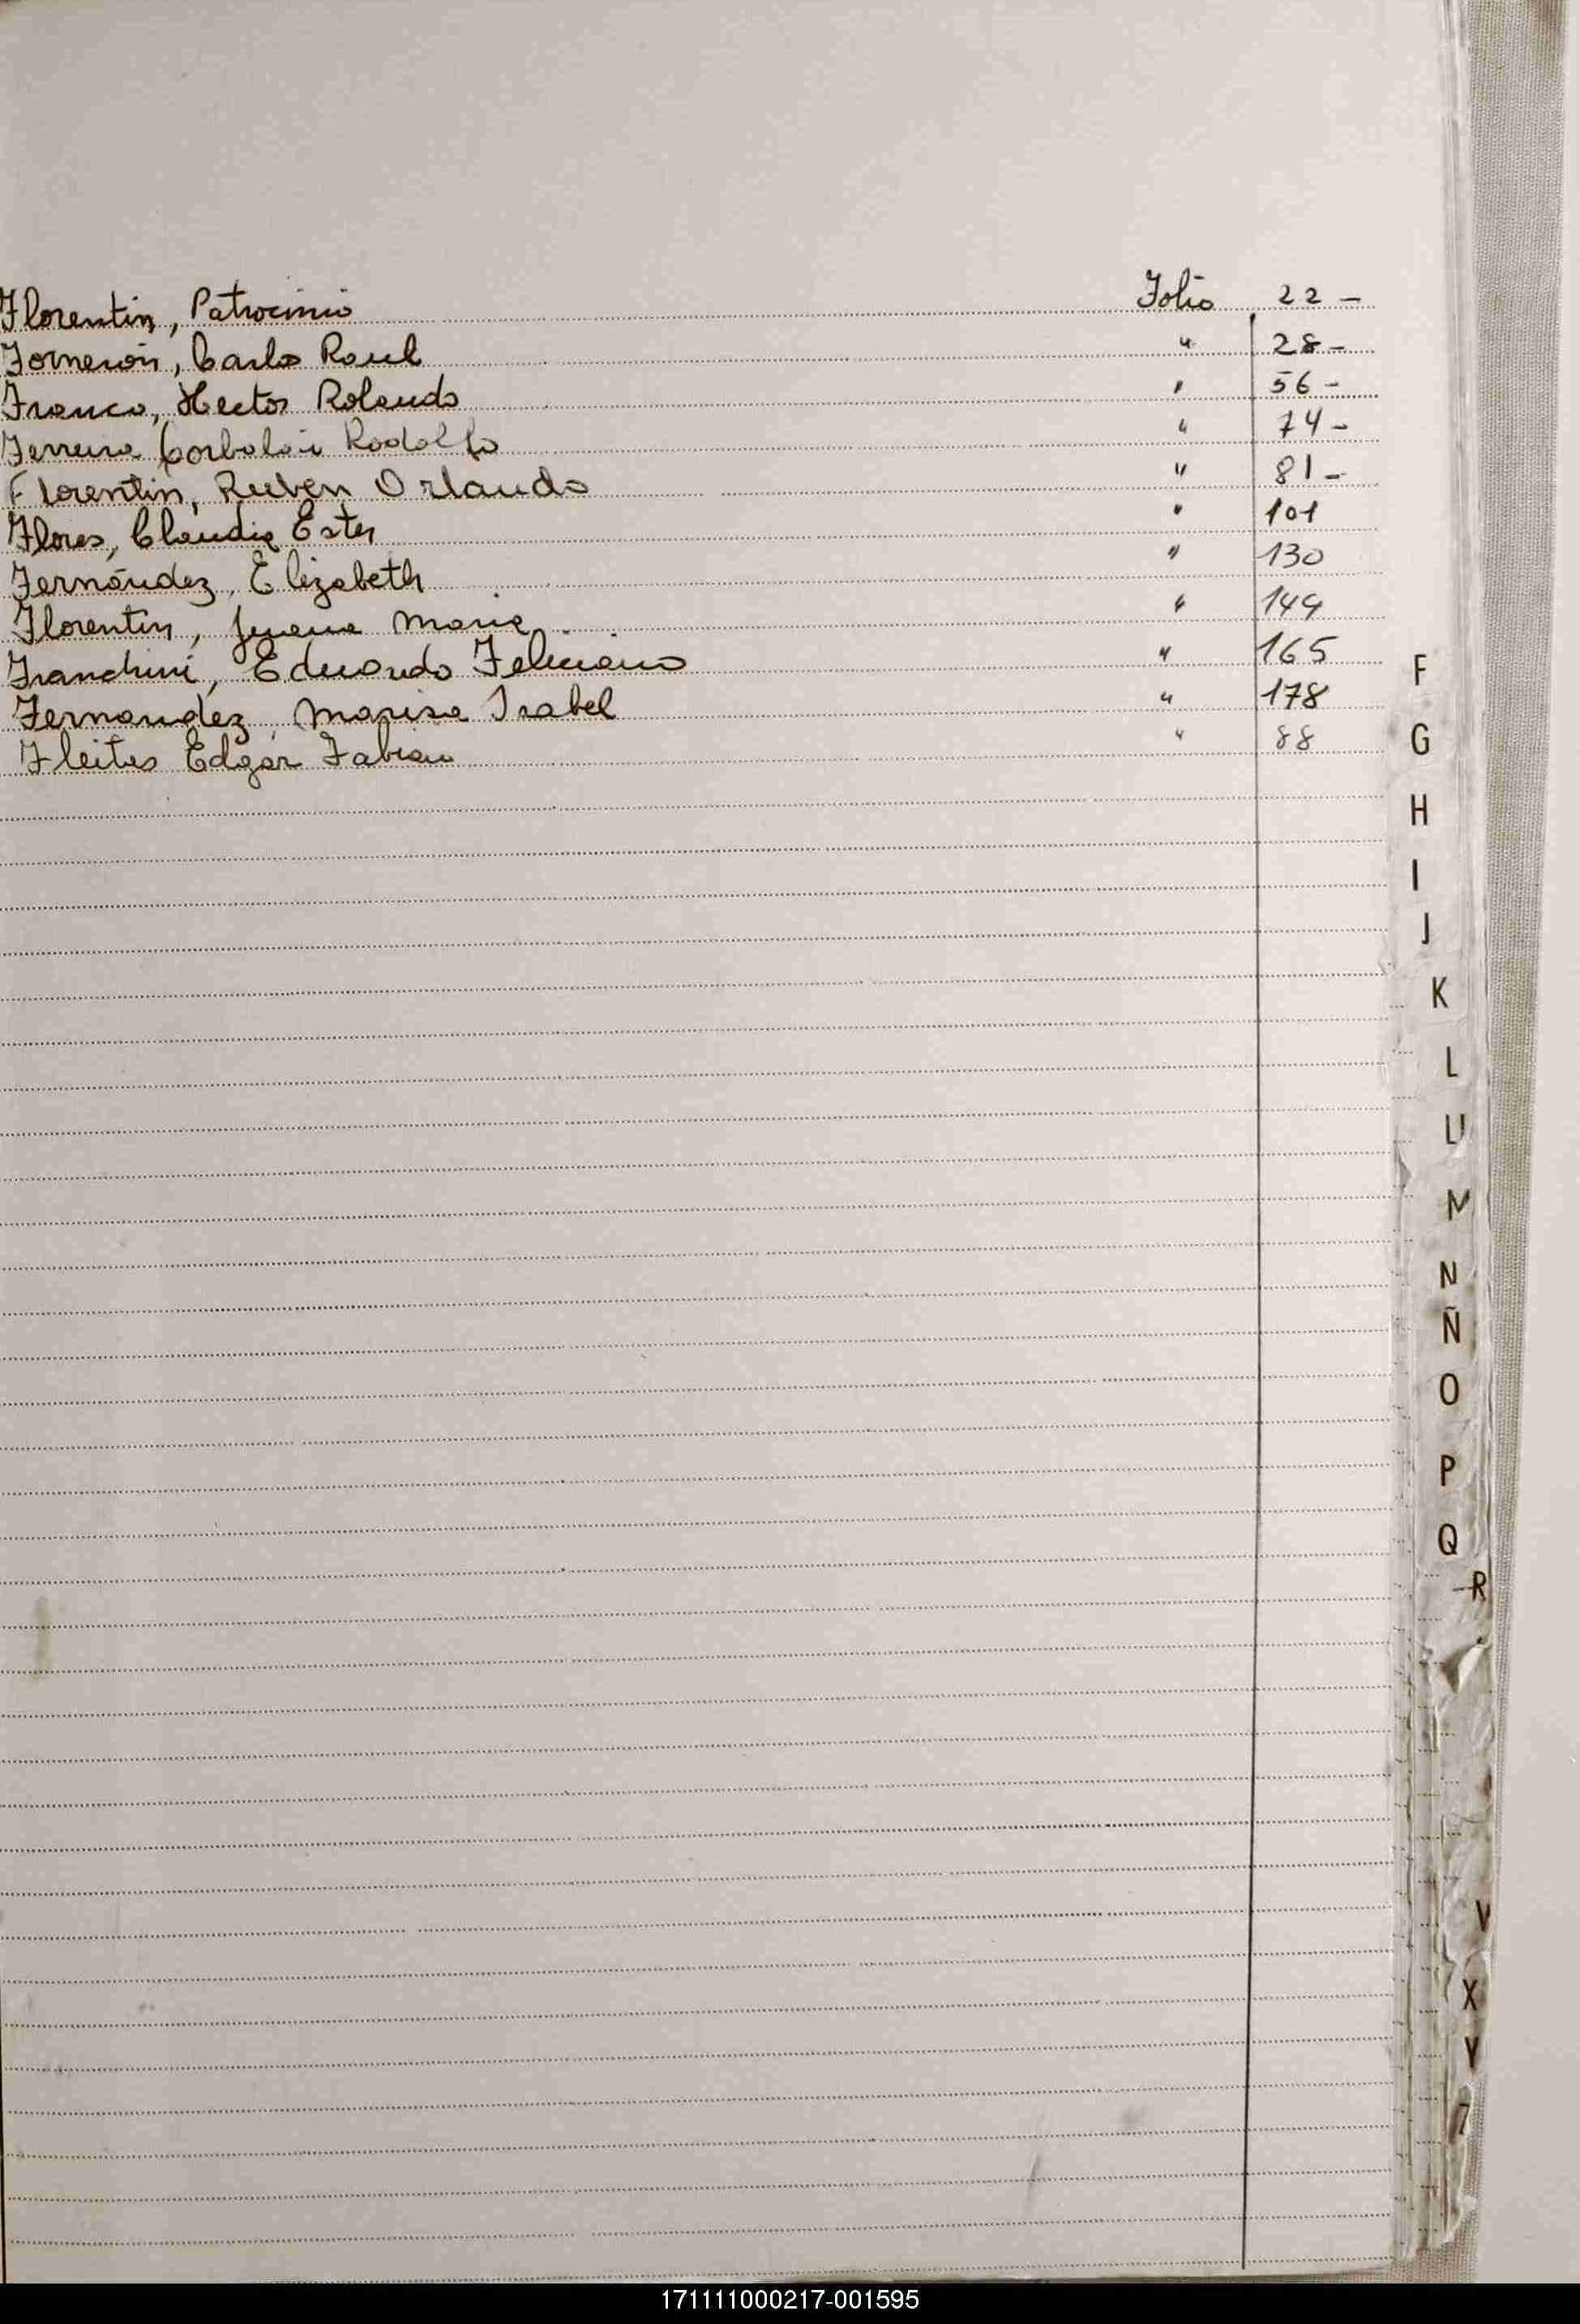 Florentin, Patrocinio Folio 22 -
Fornerón, Carlos Raul " 28 -
Franco, Hector Rolando " 56 -
Ferreira Corbalán Rodolfo " 74 -
Florentin, Ruben Orlando " 81 -
Flores, Claudia Ester " 101
Fernández, Elizabeth " 130
Florentin, Juana Maria " 149
Franchini, Eduardo Feliciano " 165
Fernandez, Marisa Isabel " 178
Fleitas Edgar Fabian " 88
F
G
H
I
J
K
L
M
N
Ñ
O
P
Q
R
V
X
Y
171111000217-001595